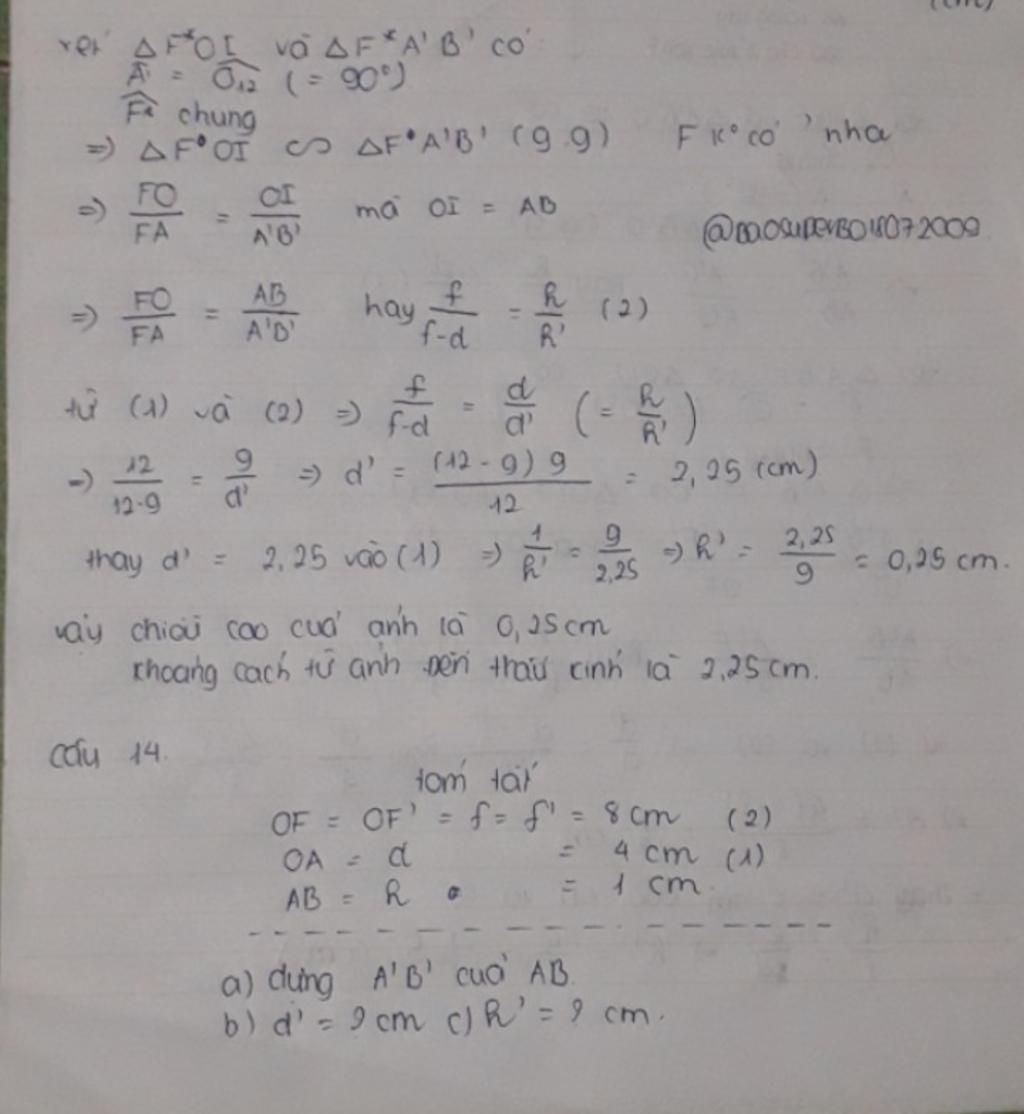 (cm)
xét △F*OI và △F*A'B' có:
Â' = Ô₁₂ (= 90°)
F̂* chung
=> △F*OI ∽ △F*A'B' (g.g) F K° có ' nha
=> FO/FA = OI/A'B' mà OI = AB
@BaoSuperBo18072009
=> FO/FA = AB/A'B' hay f/f-d = h/h' (2)
từ (1) và (2) => f/f-d = d/d' (= h/h')
=> 12/12-9 = 9/d' => d' = (12-9)9/12 = 2,25 (cm)
thay d' = 2,25 vào (1) => 1/h' = 9/2,25 => h' = 2,25/9 = 0,25 cm.
vậy chiều cao của ảnh là 0,25cm
khoảng cách từ ảnh đến thấu kính là 2,25cm.
Câu 14.
tóm tắt
OF = OF' = f = f' = 8cm (2)
OA = d = 4 cm (1)
AB = h = 1 cm.
a) dựng A'B' của AB.
b) d' = ? cm c) h' = ? cm.